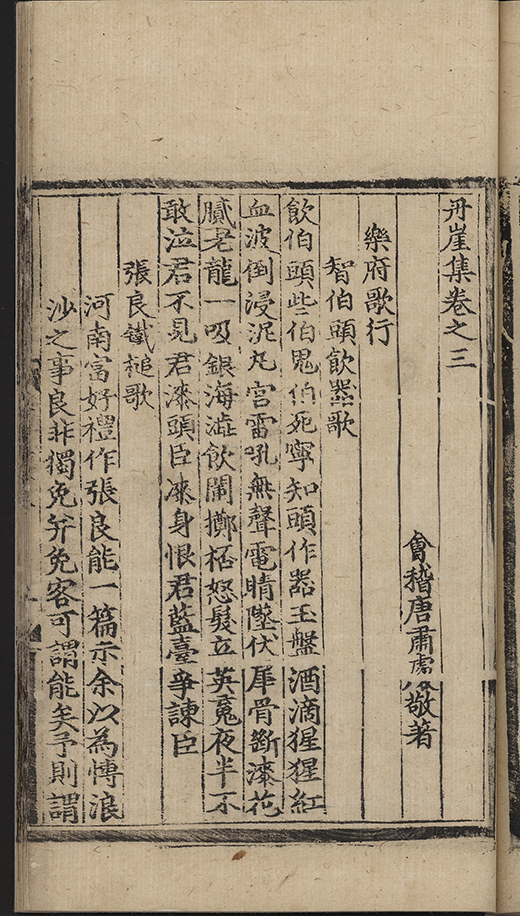 丹崖集卷之三
會稽唐肅處敬著
樂府歌行
智伯頭飲器歌
飲伯頭些伯鬼伯死寧知頭作器玉盤酒滴猩猩紅
血波倒浸泥丸宮雷吼無聲電睛墜伏犀骨斷漆花
膩老龍一吸銀海澁飲闌擲桮怒髮立英䰟夜半不
敢泣君不見君漆頭臣漆身恨君藍臺爭諫臣
張良鐵槌歌
河南富好禮作張良能一篇示余以為愽浪
沙之事良非獨免并免客可謂能矣予則謂